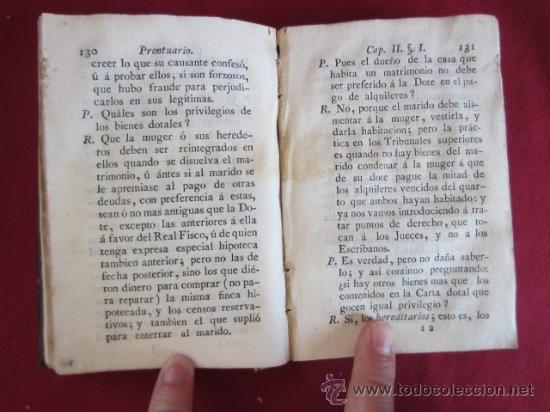 130 Prontuario.
creer lo que su causante confesó,
ú á probar ellos, si son forzosos,
que hubo fraude para perjudi-
carlos en sus legitimas.
P. Quáles son los privilegios de
los bienes dotales?
R. Que la muger ó sus herede-
ros deben ser reintegrados en
ellos quando se disuelva el ma-
trimonio, ú ántes si al marido se
le apremiase al pago de otras
deudas, con preferencia á estas,
sean ó no mas antiguas que la Do-
te, excepto las anteriores á ella
á favor del Real Fisco, ú de quien
tenga expresa especial hipoteca
tambien anterior; pero no las de
fecha posterior, sino los que dié-
ron dinero para comprar (no pa-
ra reparar) la misma finca hi-
potecada, y los censos reserva-
tivos; y tambien el que suplió
para enterrar al marido.
Cap. II. §. I. 131
P. Pues el dueño de la casa que
habita un matrimonio no debe
ser preferido á la Dote en el pa-
go de alquileres?
R. No, porque el marido debe ali-
mentar á la muger, vestirla, y
darla habitacion; pero la práctica
en los Tribunales superiores
es quando no hay bienes del ma-
rido condenar á la muger á que
de su dote pague la mitad de
los alquileres vencidos del quar-
to que ambos hayan habitado: y
ya nos vamos introduciendo á tra-
tar puntos de derecho, que to-
can á los Jueces, y no á los
Escribanos.
P. Es verdad, pero no daña saber-
lo; y asi continuo preguntando:
¿si hay otros bienes mas que los
contenidos en la Carta dotal que
gocen igual privilegio?
R. Si, los hereditarios; esto es, los
I 2
todocoleccion.net